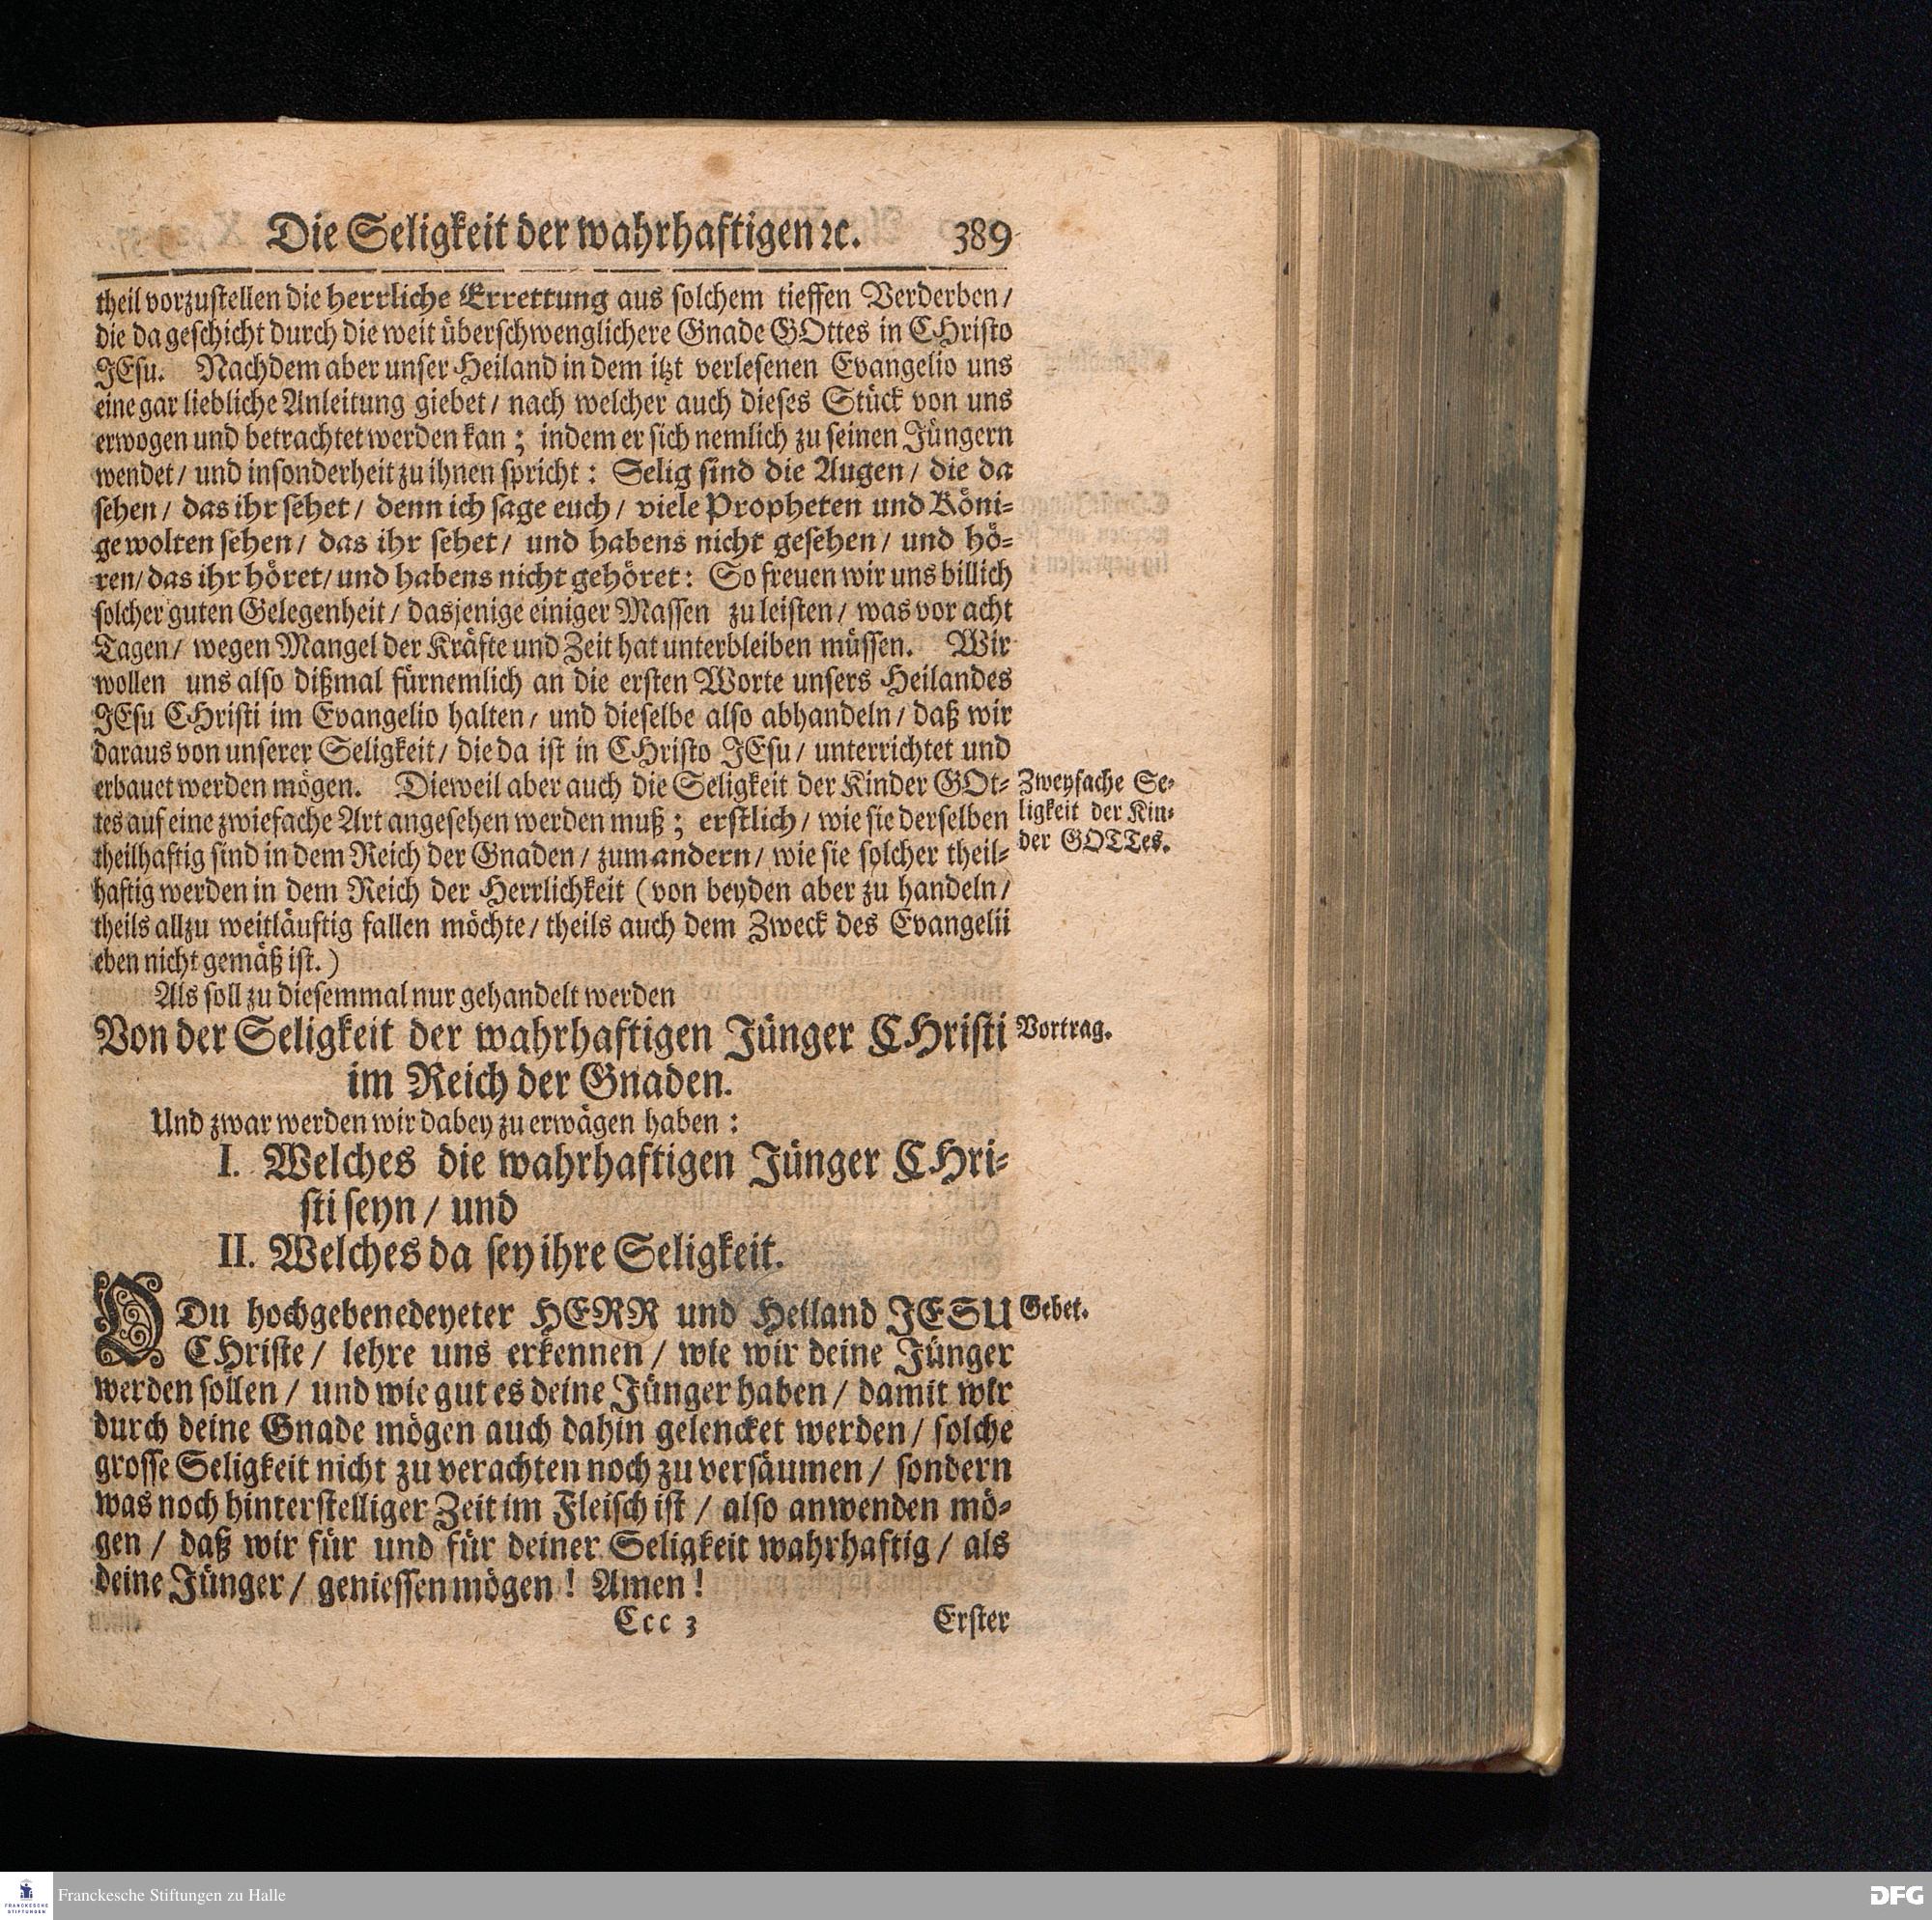 Die Seligkeit der wahrhaftigen ꝛc. 389
theil vorzustellen die herrliche Errettung aus solchem tieffen Verderben/
die da geschicht durch die weit überschwenglichere Gnade GOttes in CHristo
JEsu. Nachdem aber unser Heiland in dem itzt verlesenen Evangelio uns
eine gar liebliche Anleitung giebet/ nach welcher auch dieses Stück von uns
erwogen und betrachtet werden kan; indem er sich nemlich zu seinen Jüngern
wendet/ und insonderheit zu ihnen spricht: Selig sind die Augen/ die da
sehen/ das ihr sehet/ denn ich sage euch/ viele Propheten und Köni-
ge wolten sehen/ das ihr sehet/ und habens nicht gesehen/ und hö-
ren/ das ihr höret/ und habens nicht gehöret: So freuen wir uns billich
solcher guten Gelegenheit/ dasjenige einiger Massen zu leisten/ was vor acht
Tagen/ wegen Mangel der Kräfte und Zeit hat unterbleiben müssen. Wir
wollen uns also dißmal fürnemlich an die ersten Worte unsers Heilandes
JEsu CHristi im Evangelio halten/ und dieselbe also abhandeln/ daß wir
daraus von unserer Seligkeit/ die da ist in CHristo JEsu/ unterrichtet und
erbauet werden mögen. Dieweil aber auch die Seligkeit der Kinder GOt-
tes auf eine zwiefache Art angesehen werden muß; erstlich/ wie sie derselben
theilhaftig sind in dem Reich der Gnaden/ zum andern/ wie sie solcher theil-
haftig werden in dem Reich der Herrlichkeit (von beyden aber zu handeln/
theils allzu weitläuftig fallen möchte/ theils auch dem Zweck des Evangelii
eben nicht gemäß ist.)
Zweyfache Se-
ligkeit der Kin-
der GOTTes.
Als soll zu diesemmal nur gehandelt werden
Von der Seligkeit der wahrhaftigen Jünger CHristi
im Reich der Gnaden.
Vortrag.
Und zwar werden wir dabey zu erwägen haben:
I. Welches die wahrhaftigen Jünger CHri-
sti seyn/ und
II. Welches da sey ihre Seligkeit.
O Du hochgebenedeyeter HERR und Heiland JESU
CHriste/ lehre uns erkennen/ wie wir deine Jünger
werden sollen/ und wie gut es deine Jünger haben/ damit wir
durch deine Gnade mögen auch dahin gelencket werden/ solche
grosse Seligkeit nicht zu verachten noch zu versäumen/ sondern
was noch hinterstelliger Zeit im Fleisch ist/ also anwenden mö-
gen/ daß wir für und für deiner Seligkeit wahrhaftig/ als
deine Jünger/ geniessen mögen! Amen!
Gebet.
Ccc 3 Erster
FRANCKESCHE
STIFTUNGEN
Franckesche Stiftungen zu Halle
DFG